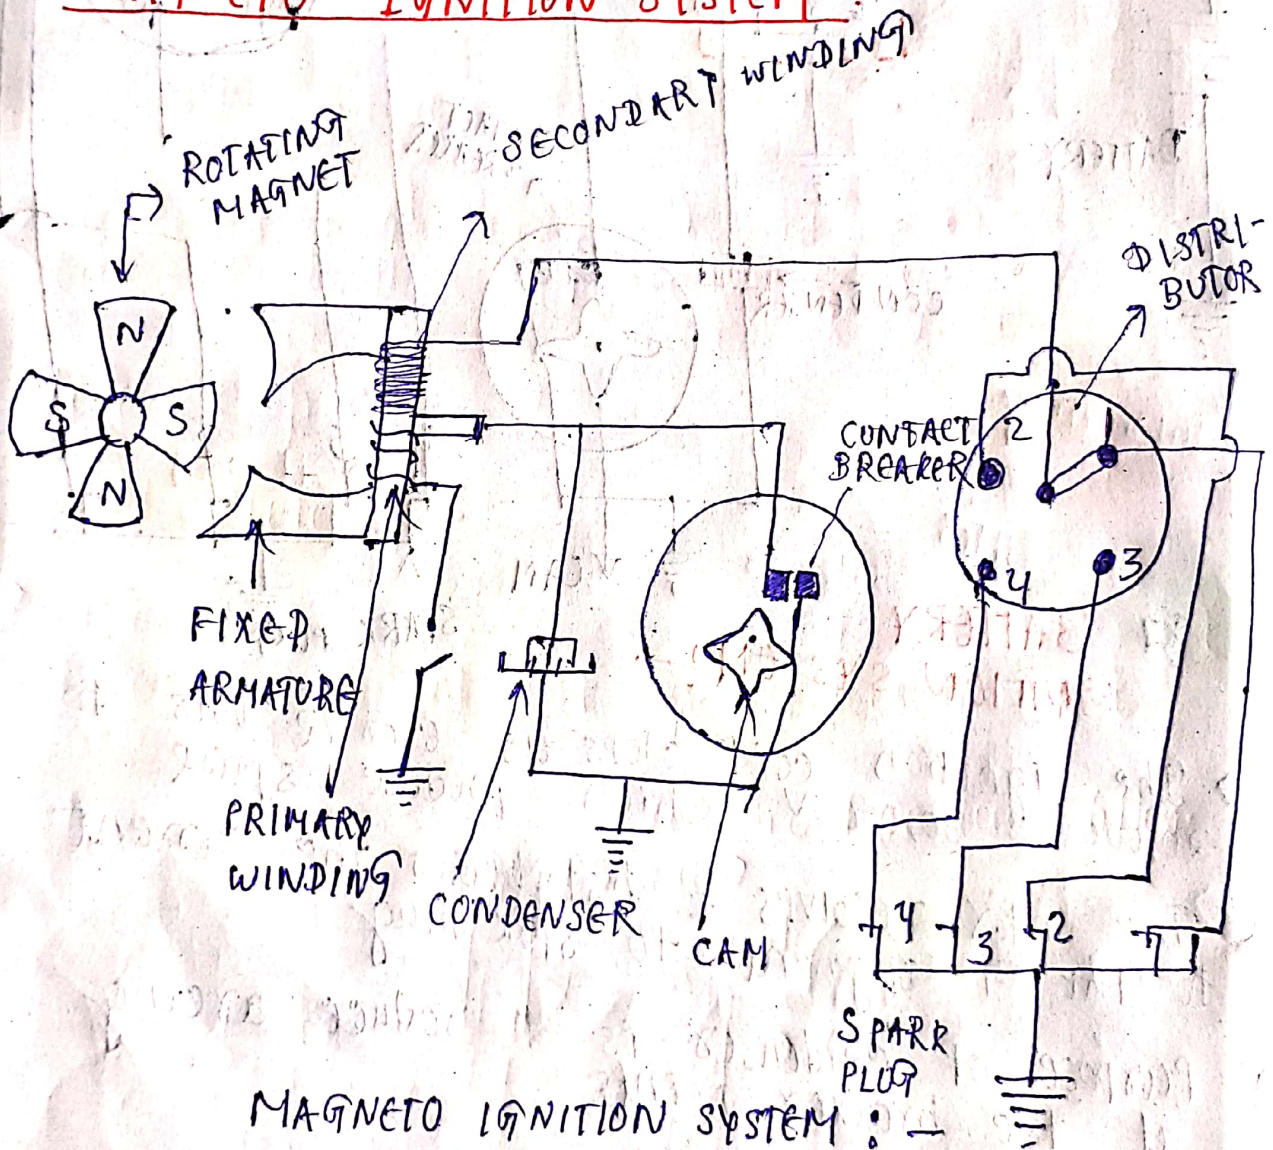 IGNITION SYSTEM
SECONDART WINDING
ROTATING
MAGNET
DISTRI-
BUTOR
N
S
S
N
CONTACT
BREAKER
2
1
4
3
FIXED
ARMATURE
PRIMARY
WINDING
CONDENSER
CAM
4
3
2
1
SPARK
PLUG
MAGNETO IGNITION SYSTEM : -